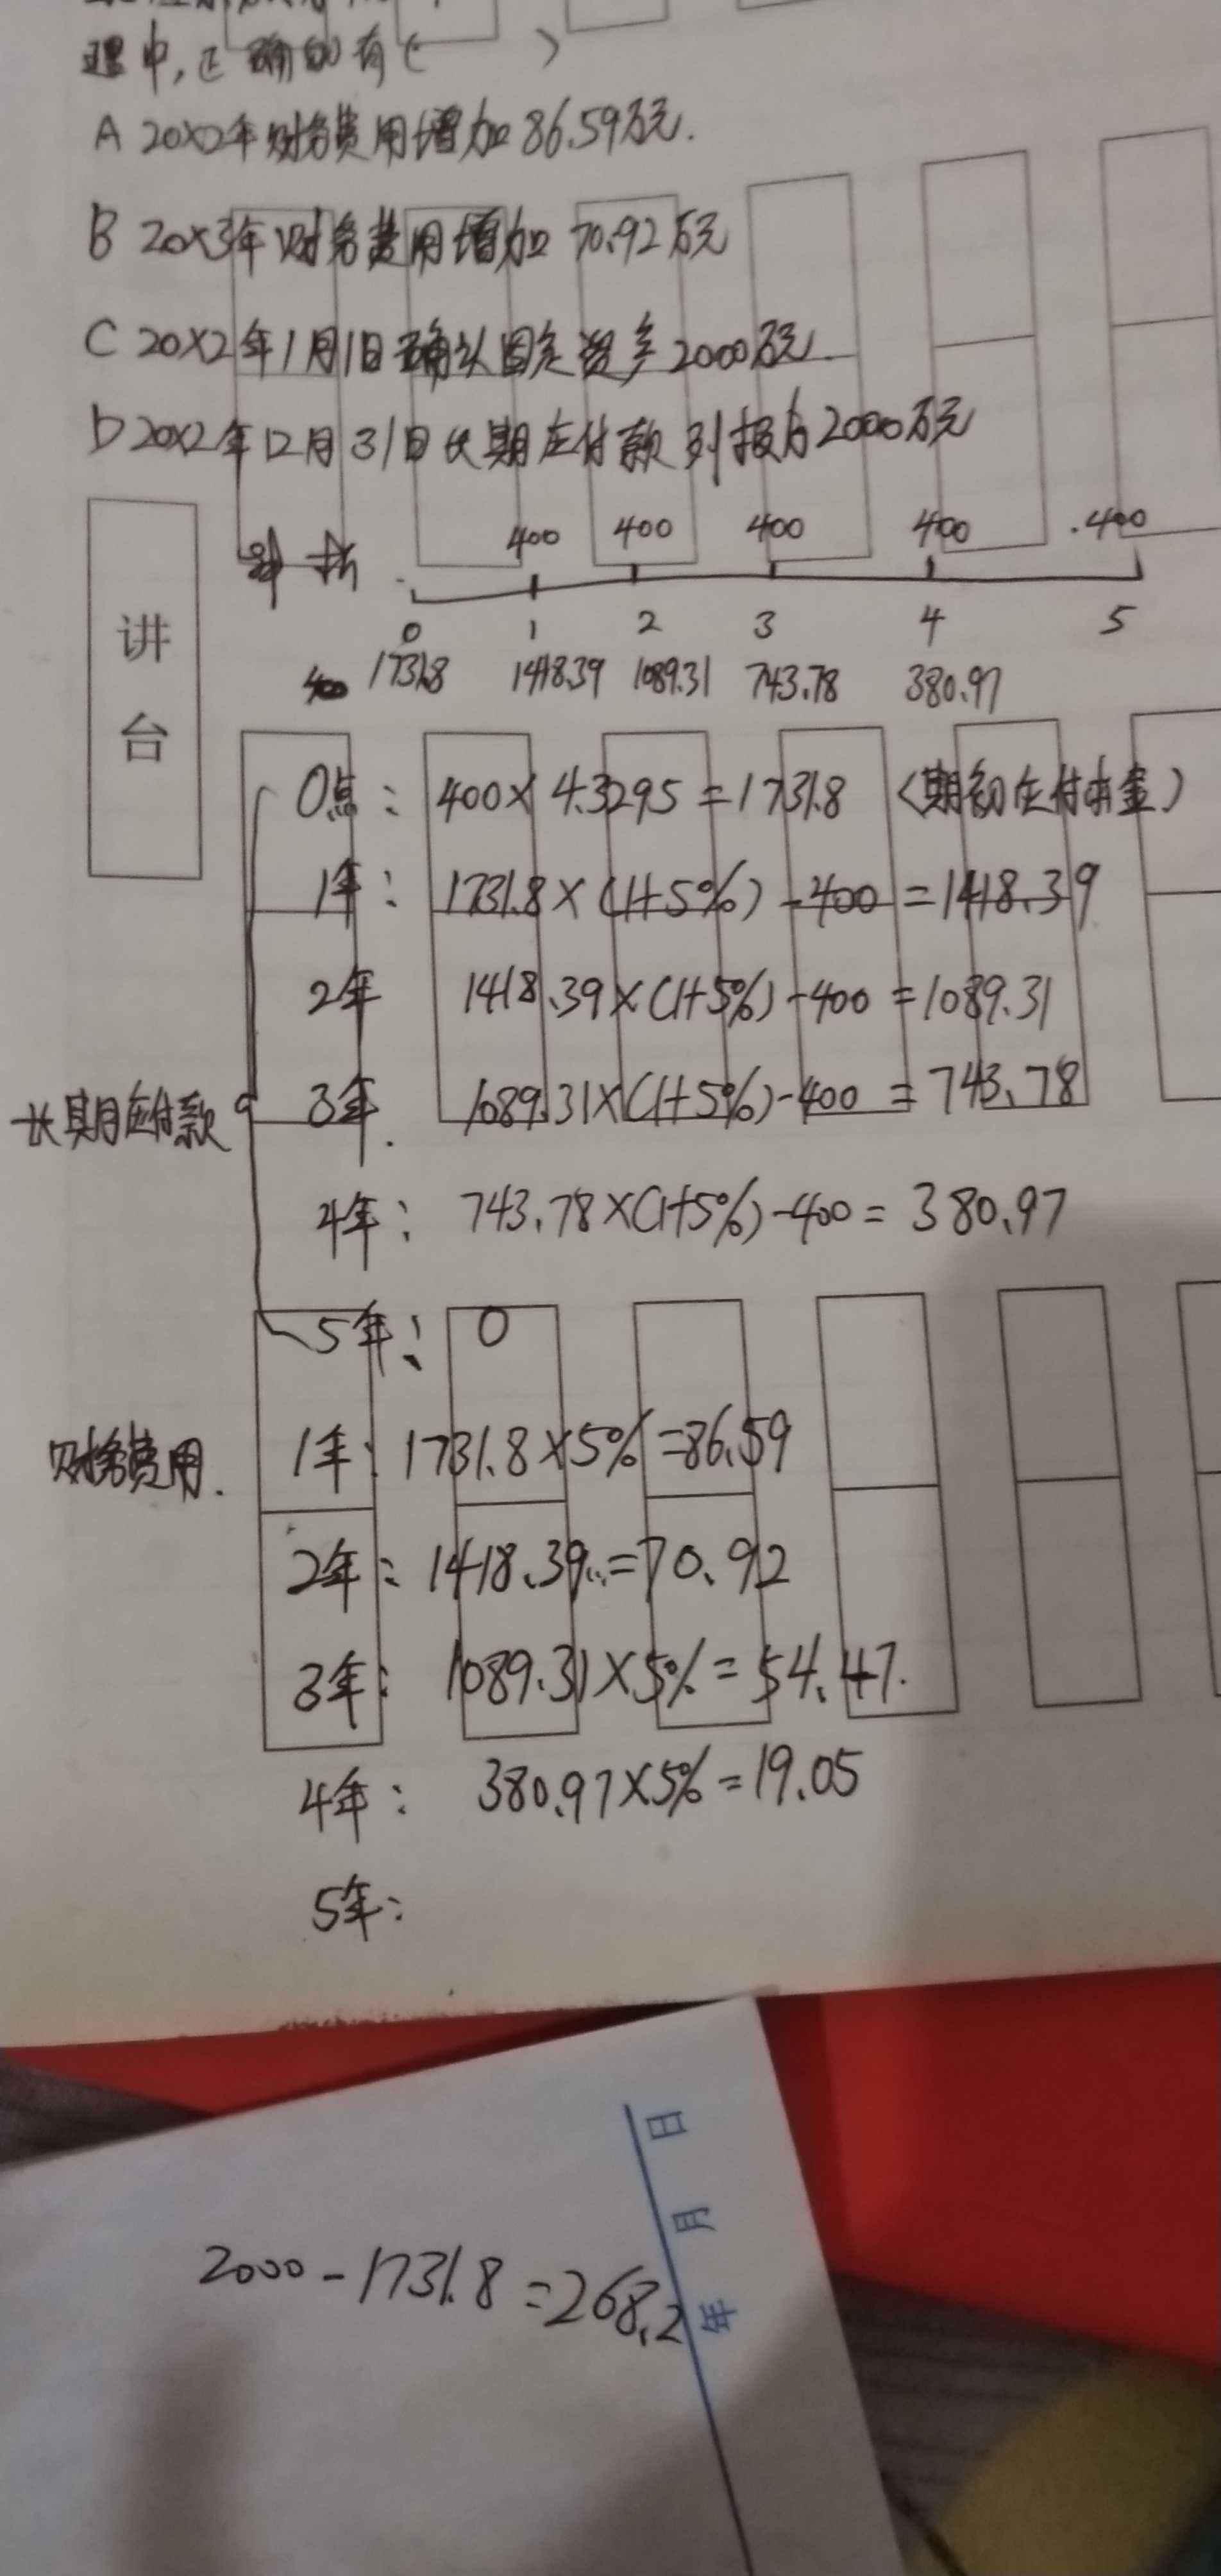 理中,正确的有( )
A 20×2年财务费用增加86.59万元.
B 20×3年财务费用增加 70.92万元
C 20×2年1月1日确认固定资产2000万元.
D 20×2年12月31日长期应付款列报为2000万元
400 400 400 400 400
0 1 2 3 4 5
1731.8 1418.39 1089.31 743.78 380.97
讲台
0点: 400×4.3295=1731.8 (期初应付本金)
1年: 1731.8×(1+5%)-400=1418.39
2年 1418.39×(1+5%)-400=1089.31
长期应付款 3年. 1089.31×(1+5%)-400=743.78
4年: 743.78×(1+5%)-400=380.97
5年: 0
财务费用. 1年: 1731.8×5%=86.59
2年: 1418.39..=70.92
3年: 1089.31×5%=54.47.
4年: 380.97×5%=19.05
5年:
日
月
年
2000-1731.8=268.2